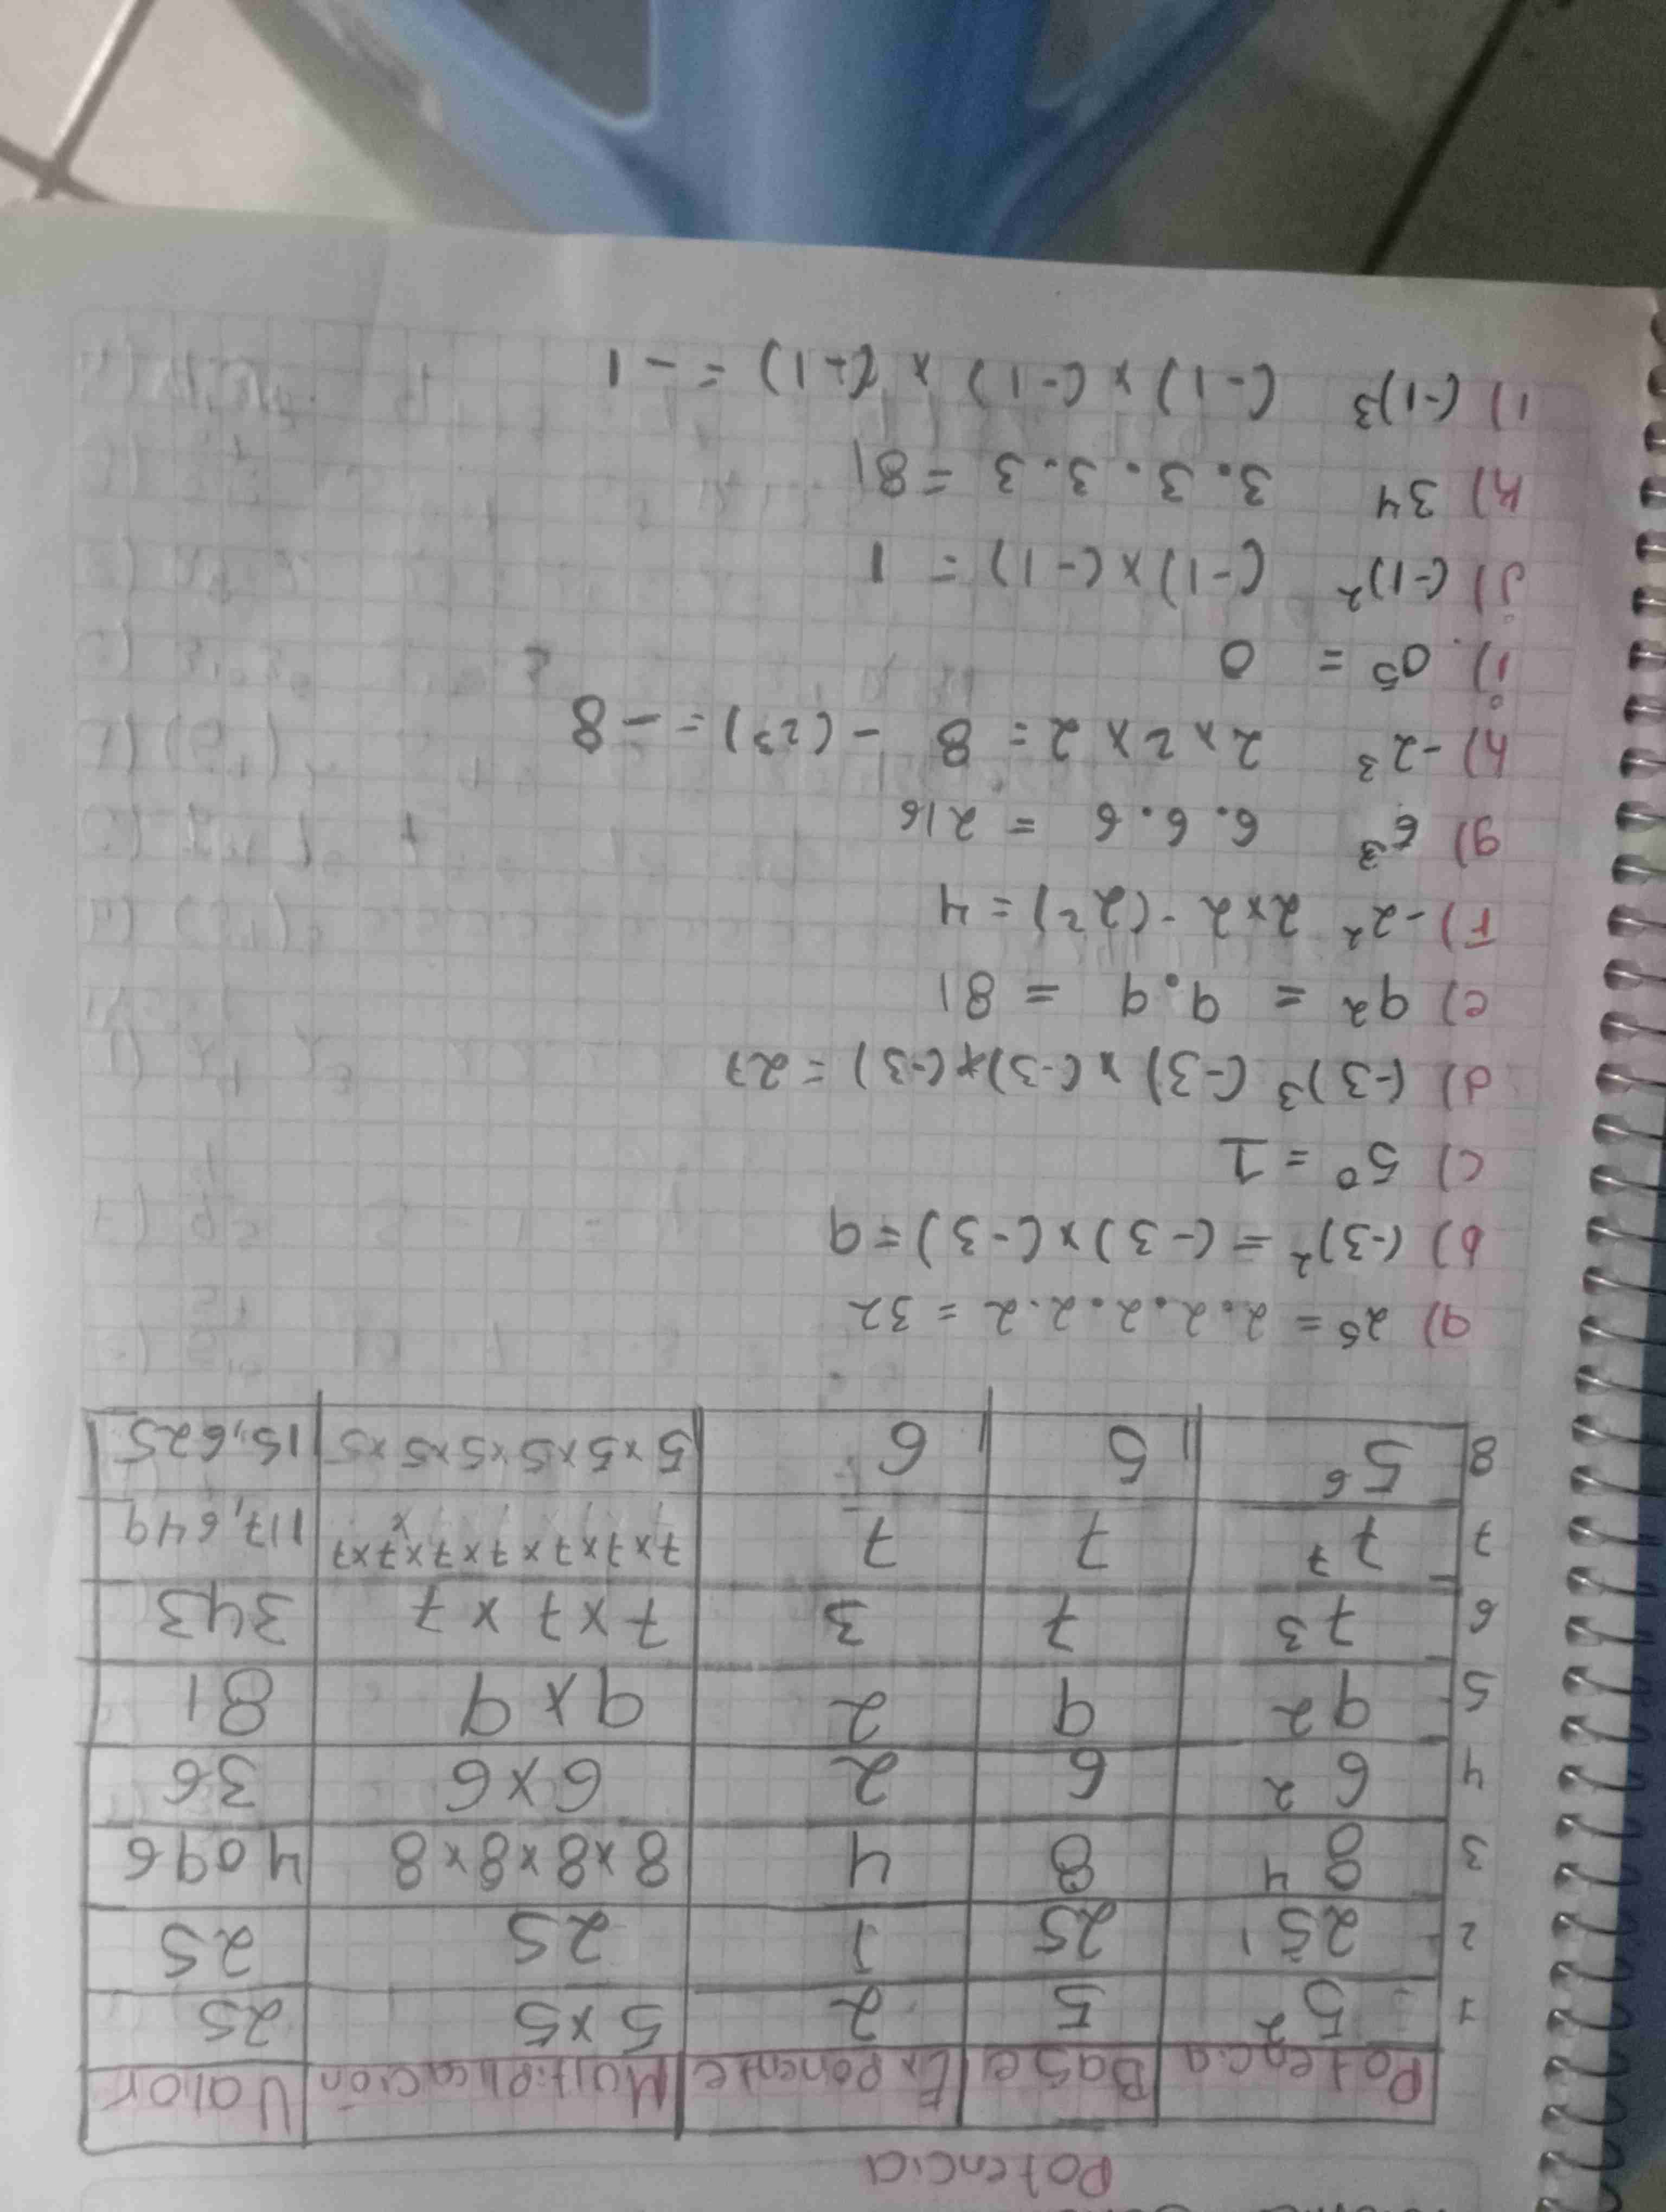 Potencia
Potencia Base Exponente Multiplicación Valor
1 5² 5 2 5×5 25
2 25¹ 25 1 25 25
3 8⁴ 8 4 8×8×8×8 4096
4 6² 6 2 6×6 36
5 9² 9 2 9×9 81
6 7³ 7 3 7×7×7 343
7 7⁷ 7 7 7×7×7×7×7×7×7 117,649
8 5⁶ 5 6 5×5×5×5×5×5 15,625
a) 2⁵ = 2.2.2.2.2 = 32
b) (-3)² = (-3)×(-3) = 9
c) 5⁰ = 1
d) (-3)³ (-3)×(-3)×(-3) = 27
e) 9² = 9.9 = 81
F) -2² 2×2 -(2²) = 4
g) 6³ 6.6.6 = 216
h) -2³ 2×2×2 = 8 -(2³) = -8
i) 0⁵ = 0
j) (-1)² (-1)×(-1) = 1
k) 34 3.3.3.3 = 81
l) (-1)³ (-1)×(-1)×(-1) = -1